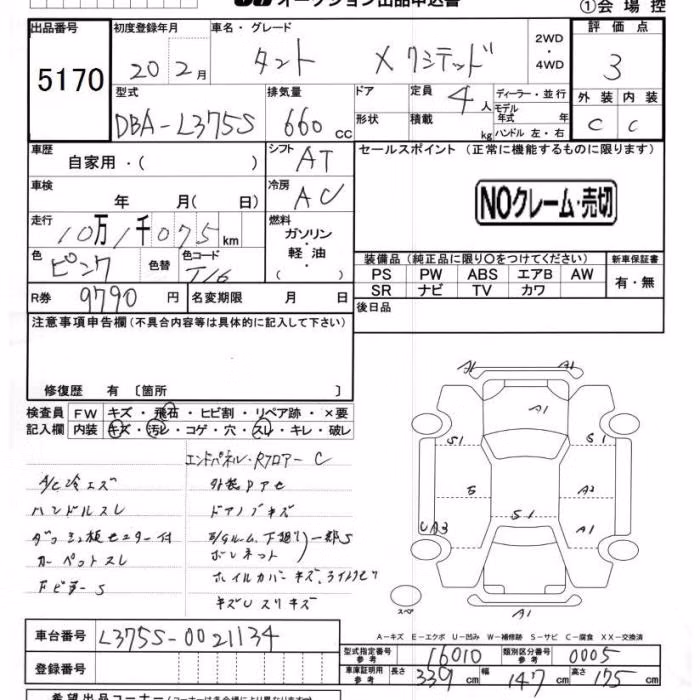 オークション出品申込書
①会場控
出品番号 初度登録年月 車名・グレード 2WD ・ 4WD 評価点
5170 20年2月 タント Xリミテッド 3
型式 排気量 ドア 定員 4人 ディーラー・並行 外装 内装
DBA-L375S 660cc 形状 積載 kg モデル年式 年 ハンドル 左・右 C C
車歴 自家用・( ) シフト AT セールスポイント (正常に機能するものに限ります)
車検 年 月( 日) 冷房 AC
NOクレーム・売切
走行 10万1千075km 燃料 ガソリン・軽油・( )
色 ピンク 色替 色コード T16
装備品(純正品に限り○をつけてください) 新車保証書
PS PW ABS エアB AW 有・無
SR ナビ TV カワ
R券 9790円 名変期限 月 日 後日品
注意事項申告欄(不具合内容等は具体的に記入して下さい)
修復歴 有 〔箇所 〕
検査員 FW キズ・飛石・ヒビ割・リペア跡・×要
記入欄 内装 キズ・汚レ・コゲ・穴・スレ・キレ・破レ
エンドパネル・Rフロアー C
A/C冷エズ 外装PアC
ハンドルスレ ドアノブキズ
ダッシュ板センター付 E/Gルーム、下廻り 一部S
カーペットスレ ボンネット
下ビラーS ホイルカバーキズ、
キズUスリキズ
A1 A1
A1
S1 S1
S A2
S1
UA3 A1
スペア A1
A-キズ E-エクボ U-凹み W-補修跡 S-サビ C-腐食 XX-交換済
車台番号 L375S-0021134
型式指定番号 参考 16010 類別区分番号 参考 0005
登録番号 車庫証明用 参考 長さ 339cm 幅 147cm 高さ 175cm
希望出品コーナー(コーナー名は各会場により異なります)